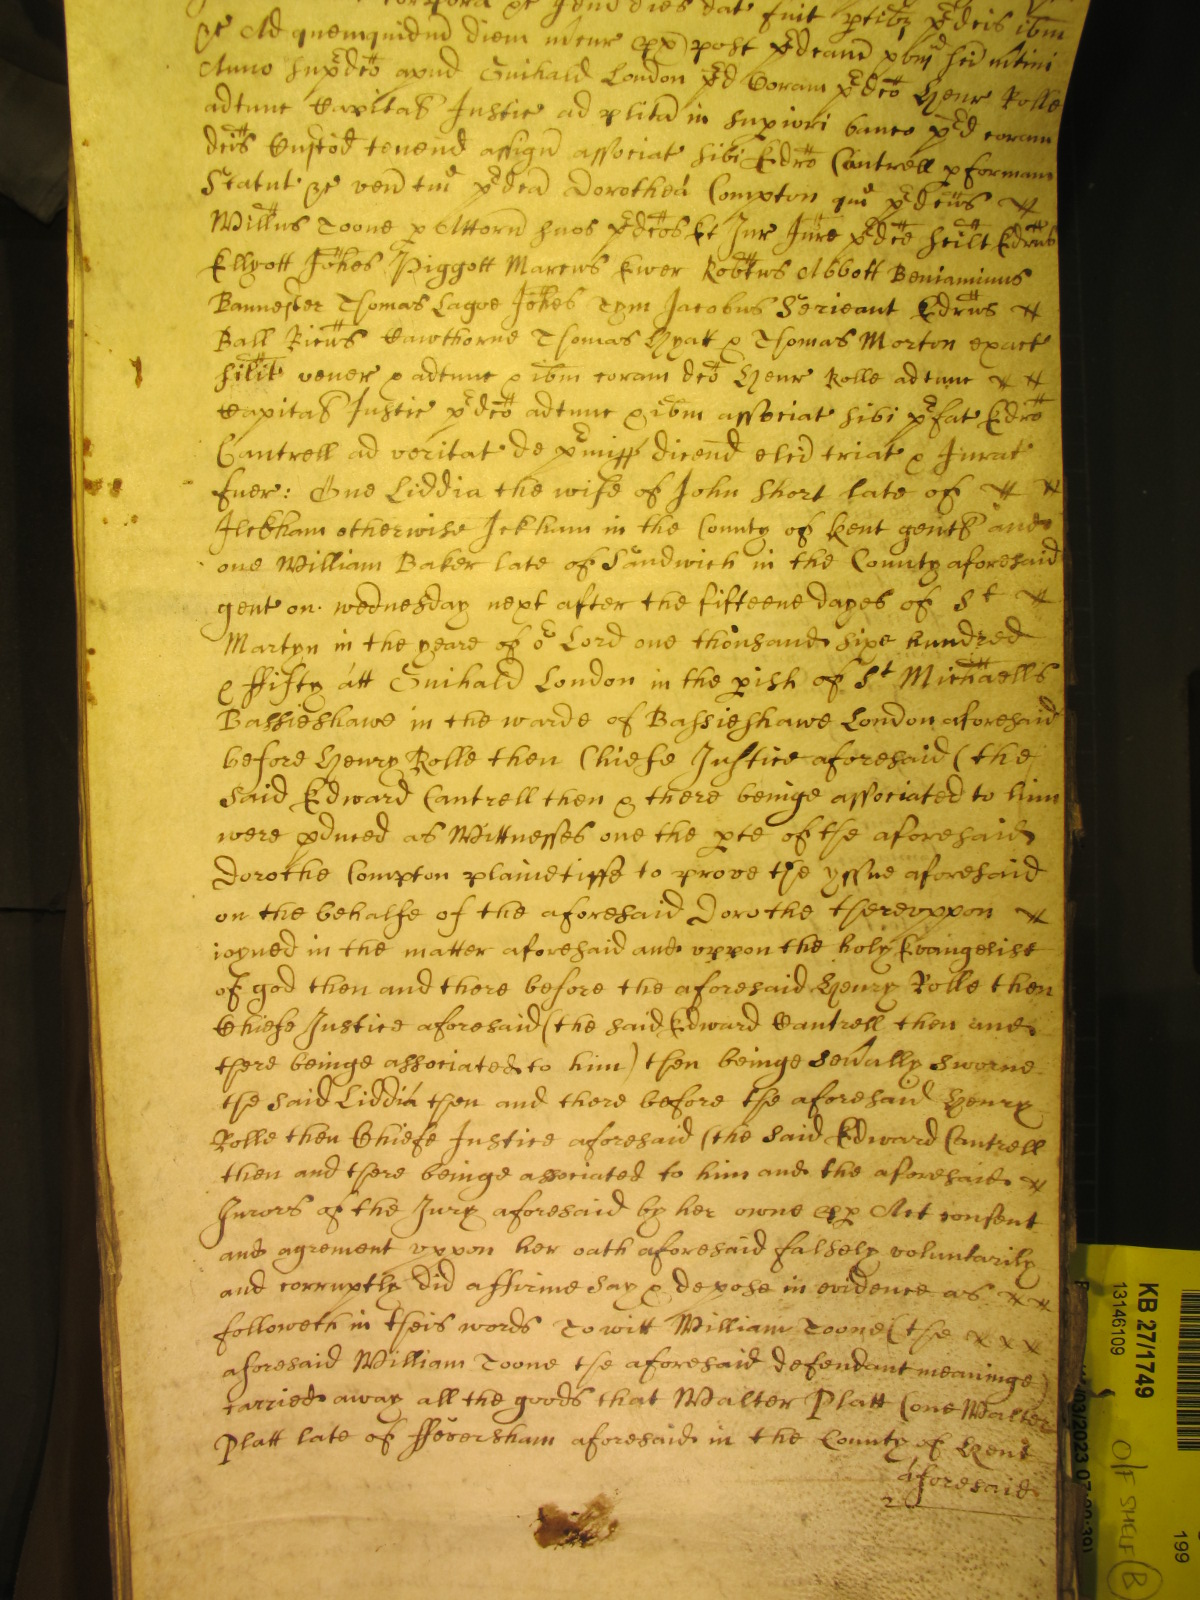 corpora &c idem dies dat fuit ptibz pdcis ibm
&c Ad quemquidm diem
Anno supdco apud Guihald London pd Coram pdco Henr Rolle
adtunc Capital Justic ad plita in supiori banco pd coram
dcis Custod tenend assign associat sibi Edro Cantrell p formam
Statut &c ven tm pdca Dorothea Compton qm pdcus
Willus Toone p Attorn suos pdcos Et Jur Jure pdce scilt Edrus
Ellyott Johes Piggott Marcus Ewer Robtus Abbott Beniaminus
Bannester Thomas Lagoe Johes Tym Jacobus Serieant Edrus
Ball Ricus Hawthorne Thomas Hyatt & Thomas Morton exact
silit vener & adtunc & ibm coram dco Henr Rolle adtunc
Capital Justic pdco adtunc & ibm associat sibi pfat Edro
Cantrell ad veritat de pmiss dicend elcti triat & Jurat
fuer: One Liddia the wife of John Short late of
Ickham otherwise Ickham in the County of Kent gent and
one William Baker late of Sandwich in the County aforesaid
gent on wednesday next after the fifteene dayes of St
Martyn in the yeare of or Lord one thousand sixe hundred
& ffifty att Guihald London in the pish of St Michaells
Bassieshawe in the warde of Bassieshawe London aforesaid
before Henry Rolle then Chiefe Justice aforesaid (the
said Edward Cantrell then & there beinge associated to him
were pduced as Wittnesses one the pte of the aforesaid
Dorothe Compton plaintiffe to prove the yssue aforesaid
on the behalfe of the aforesaid Dorothe thereuppon
ioyned in the matter aforesaid and uppon the holy Evangelist
of god then and there before the aforesaid Henry Rolle then
Chiefe Justice aforesaid (the said Edward Cantrell then and
there beinge associated to him) then beinge sevally sworne
the said Liddia then and there before the aforesaid Henry
Rolle then Chiefe Justice aforesaid (the said Edward Cantrell
then and there beinge associated to him and the aforesaid
Jurors of the Jury aforesaid by her owne Act consent
and agrement uppon her oath aforesaid falsely voluntarily
and corruptly did affirme say & depose in evidence as
followeth in theis words To witt William Toone (the
aforesaid William Toone the aforesaid defendant meaninge)
carried away all the goods that Walter Platt (one Walter
Platt late of ffeversham aforesaid in the County of Kent
aforesaid
KB 27/1749
13146109
03/2023 07:00:30
OFF SHELF (B)
199